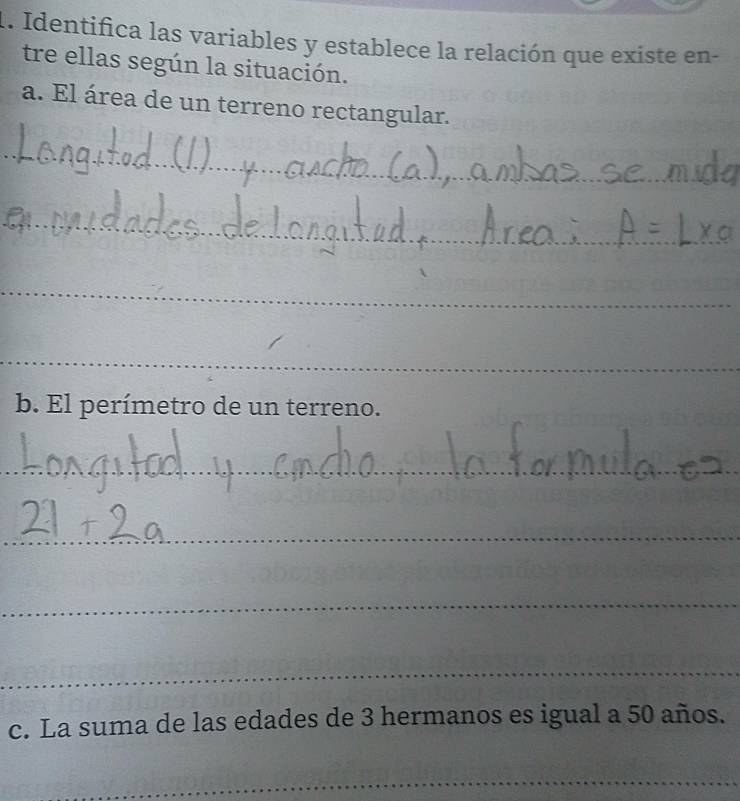 1. Identifica las variables y establece la relación que existe en-
tre ellas según la situación.
a. El área de un terreno rectangular.
Longitod (l) y ancho (a), ambas se mide
en unidades de longitud, Area: A = L x a
b. El perímetro de un terreno.
Longitod y encho, la formula es
2l + 2a
c. La suma de las edades de 3 hermanos es igual a 50 años.